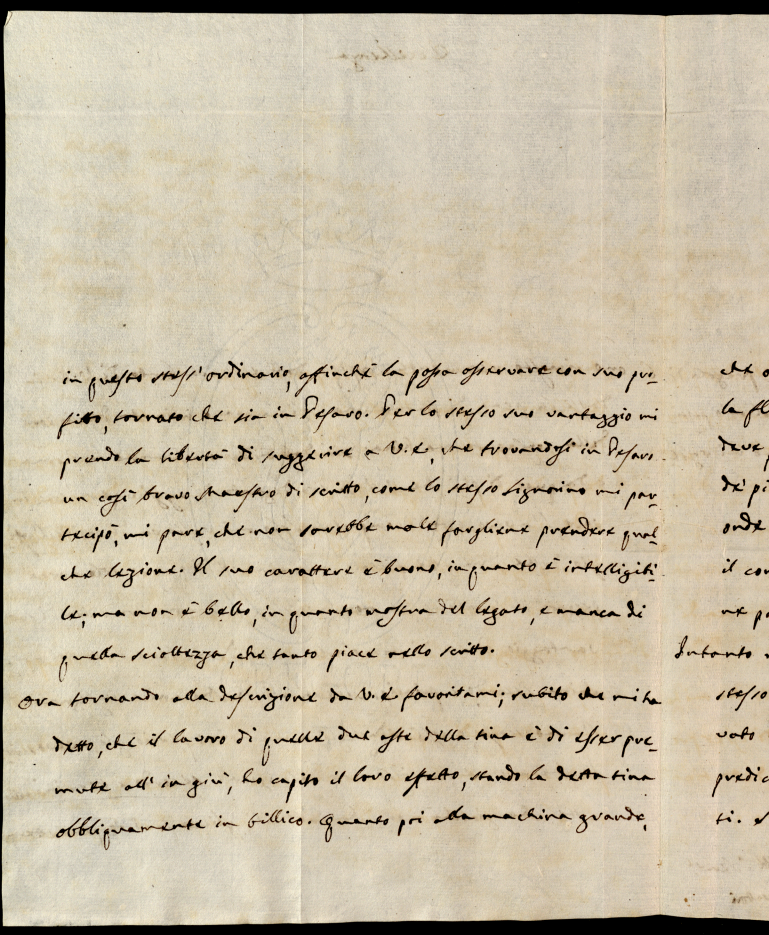 in questo stess' ordinario, affinchè la possa osservare con suo pro-
fitto, tornato che sia in Pesaro. Per lo stesso suo vantaggio mi
prendo la libertà di suggerire a V. E., che trovandosi in Pesaro
un così bravo Maestro di scritto, come lo stesso Signorino mi par-
tecipò, mi pare, che non sarebbe male fargliene prendere qual-
che lezione. Il suo carattere è buono, in quanto è intelligibi-
le; ma non è bello, in quanto mostra del legato, e manca di
quella scioltezza, che tanto piace nello scritto.
Ora tornando alla descrizione da V. E. favoritami; subito che mi ha
detto, che il lavoro di quelle due aste della tina è di esser pre-
mute all' in giù, ho capito il loro effetto, stando la detta tina
obbliquamente in billico. Quanto poi alla machina grande,
che
la fl
deve
de' pi
onde
il con
ne pa
Intanto
stesso
vato
predic
ti.